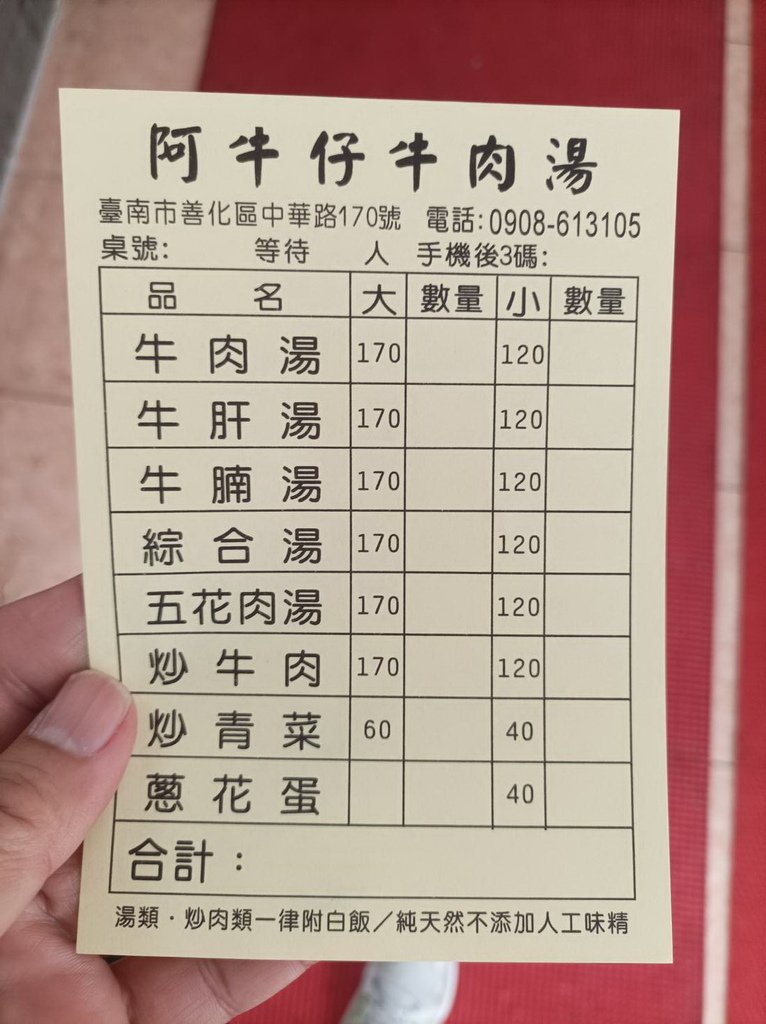 阿牛仔牛肉湯
臺南市善化區中華路170號 電話:0908-613105
桌號: 等待 人 手機後3碼:
品名 大 數量 小 數量
牛肉湯 170 120
牛肝湯 170 120
牛腩湯 170 120
綜合湯 170 120
五花肉湯 170 120
炒牛肉 170 120
炒青菜 60 40
蔥花蛋 40
合計：
湯類·炒肉類一律附白飯／純天然不添加人工味精